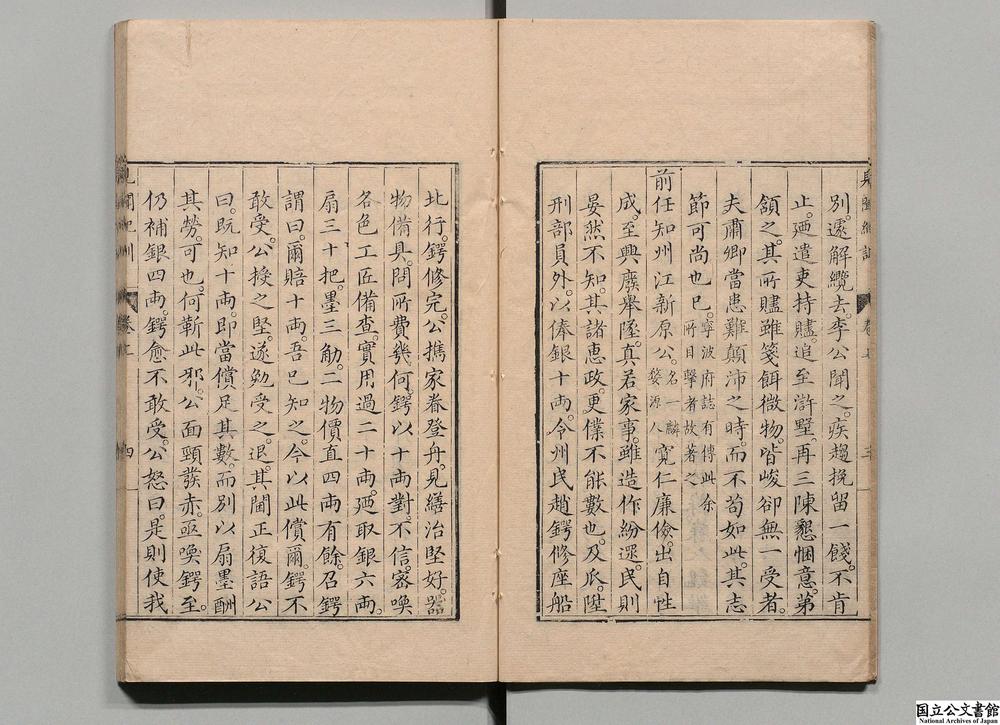 別。遽解纜去。李公聞之。疾趨挽留一餞。不肯
止。廼遣吏持贐。追至滸墅。再三陳懇悃意。第
頷之。其所贐雖箋餌微物。皆峻卻無一受者。
夫肅卿當患難顛沛之時。而不苟如此。其志
節可尚也已。寧波府誌有傳此余
所目擊者故著之
前任知州江新原公。名一麟
婺源人寬仁廉儉。出自性
成。至興廢舉墜。真若家事。雖造作紛遝。民則
晏然不知。其諸惠政。更僕不能數也。及瓜。陞
刑部員外。以俸銀十両。令州民趙鍔修座船
北行。鍔修完。公擕家眷登舟。見繕治堅好。器
物備具。問所費幾何。鍔以十両對。不信。密喚
各色工匠備查。實用過二十両。廼取銀六両。
扇三十把。墨三觔。二物價直四両有餘。召鍔
謂曰。爾賠十両。吾已知之。今以此償爾。鍔不
敢受。公授之堅。遂勉受之。退。其閫正復語公
曰。既知十両。即當償足其數。而別以扇墨酬
其勞。可也。何靳此邪。公面頸發赤。亟喚鍔至。
仍補銀四両。鍔愈不敢受。公怒曰。是則使我
国立公文書館
National Archives of Japan